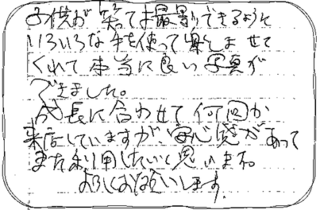 子供が笑って撮影できるように
いろいろな手を使って楽しませて
くれて本当に良い写真が
できました。
成長に合わせて何回か
来店していますが、安心感があって
また利用したいと思います。
よろしくお願いします。